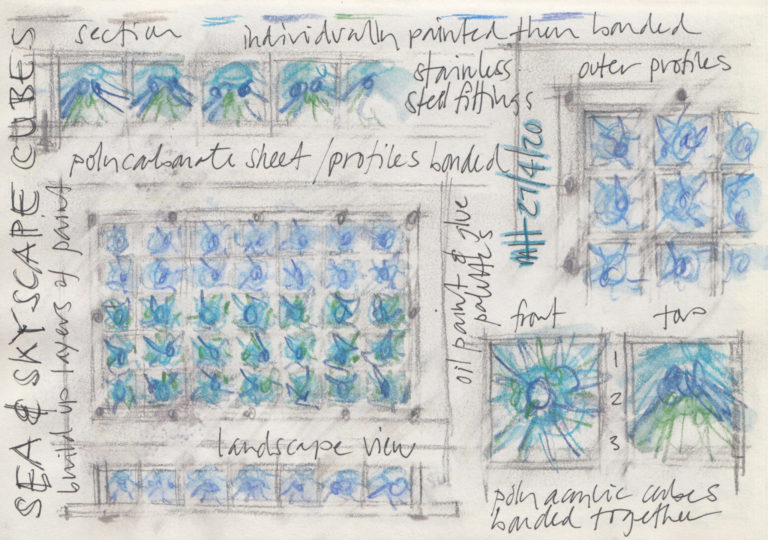 section
individually painted then bonded
stainless
steel fittings
outer profiles
polycarbonate sheet/profiles bonded
MH 27/4/20
SEA & SKYSCAPE CUBES
build up layers of paint
oil paint & glue
palettes
front
top
1
2
3
landscape view
poly acrylic cubes
bonded together